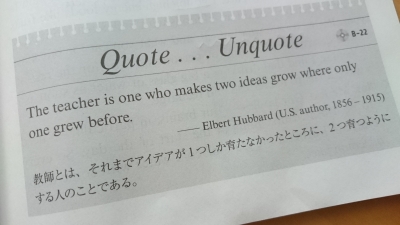 Quote . . . Unquote
B-22
The teacher is one who makes two ideas grow where only
one grew before.
—— Elbert Hubbard (U.S. author, 1856–1915)
教師とは、それまでアイデアが1つしか育たなかったところに、2つ育つように
する人のことである。